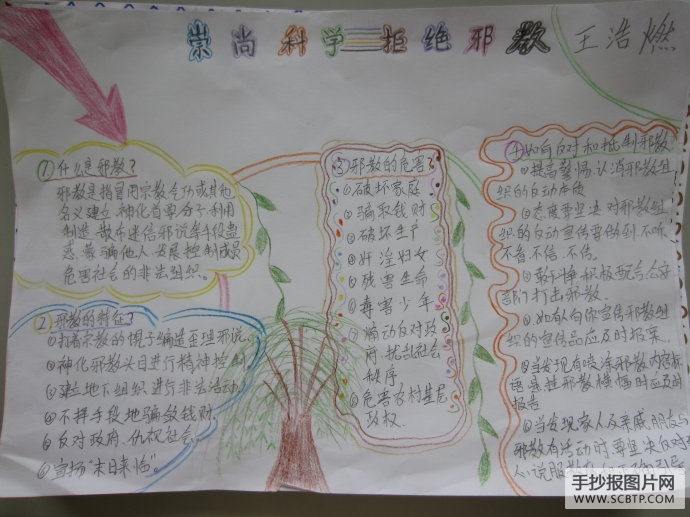 崇尚科学 拒绝邪教
王浩燃
①什么是邪教?
邪教是指冒用宗教气功或其他
名义建立、神化首要分子利用
制造、散布迷信邪说等手段蛊
惑、蒙骗他人、发展控制成员
危害社会的非法组织。
②邪教的特征?
①打着宗教的幌子编造歪理邪说。
②神化邪教头目进行精神控制
③建立地下组织进行非法活动
④不择手段地骗敛钱财
⑤反对政府、仇视社会
⑥宣扬"末日来临"。
③邪教的危害?
①破坏家庭
②骗取钱财
③破坏生产
④奸淫妇女
⑤残害生命
⑥毒害少年
⑦煽动反对政
府,扰乱社会
秩序
⑧危害农村基层
政权.
④如何反对和抵制邪教
①提高警惕,认清邪教组
织的反动本质
②态度要坚决对邪教组
织的反动宣传要做到,不听、
不看、不信、不传。
③敢于斗争积极配合公安
部门打击邪教.
④如有人向你宣传邪教组
织的宣传品应及时报案.
⑤当发现有喷涂邪教内容标
语悬挂邪教横幅时应及时
报告
⑥当发现家人及亲戚朋友与
邪教有活动时,要坚决反对
手抄报图片网
WWW.SCBTP.COM